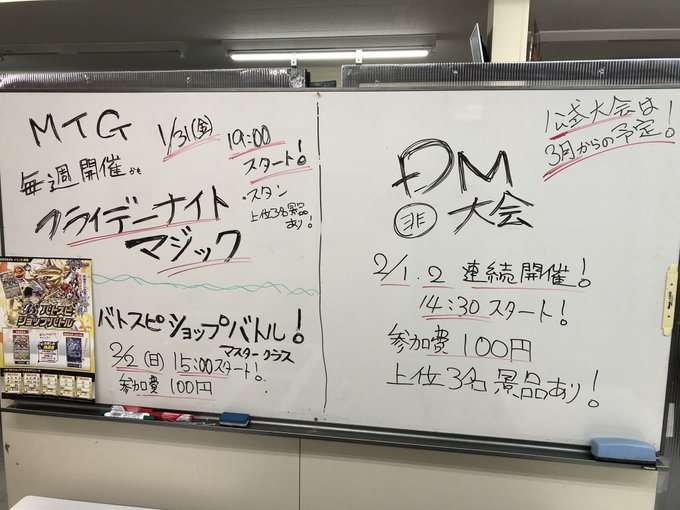 MTG 1/31(金) 19:00
スタート!
毎週開催かも
・スタン
上位3名景品
あり!
フライデーナイト
マジック
バトスピ
ショップバトル
バトスピショップバトル!
マスタークラス
2/2(日) 15:00スタート!
参加費 100円
公式大会は
3月からの予定!
DM
非 大会
2/1.2 連続開催!
14:30スタート!
参加費 100円
上位3名景品あり!